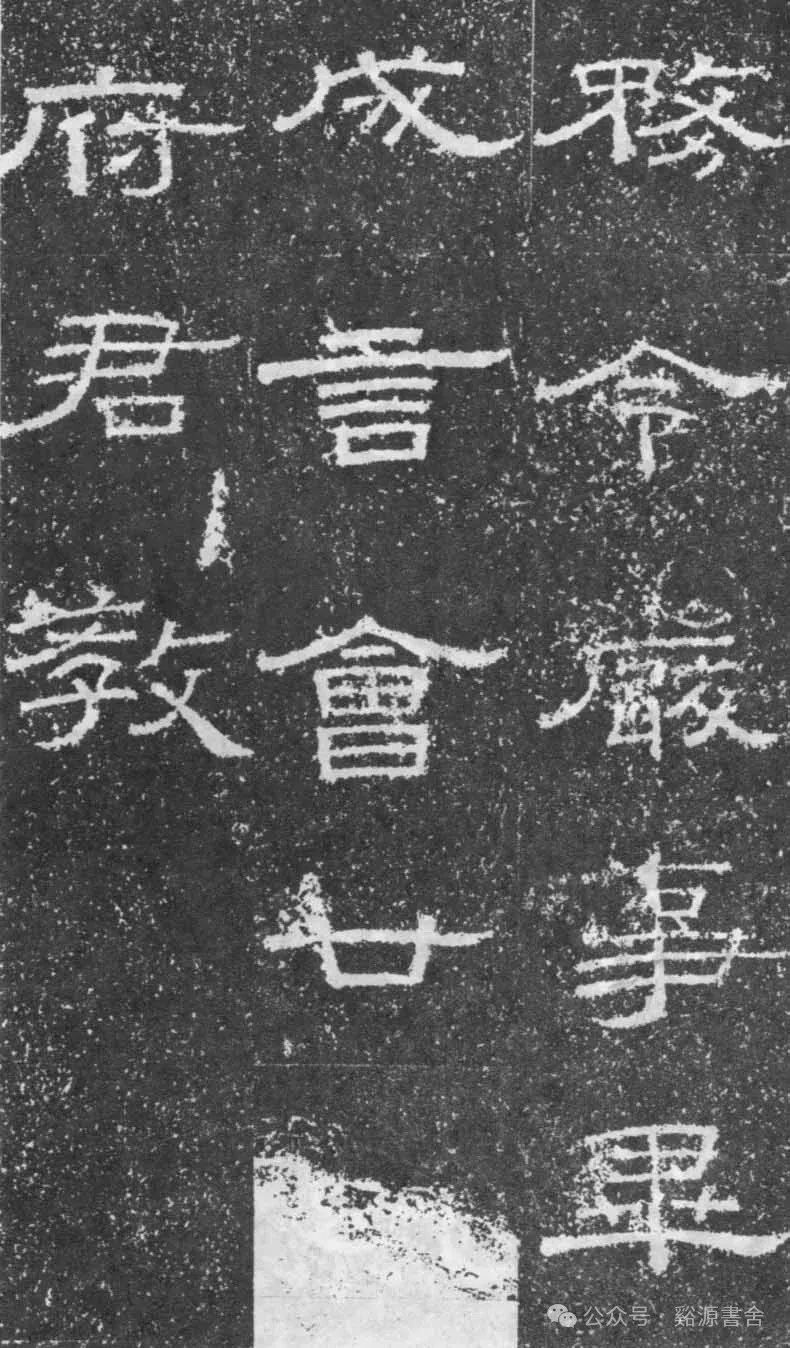 務令嚴事畢
成言會廿
府君教
公众号·谿源書舍